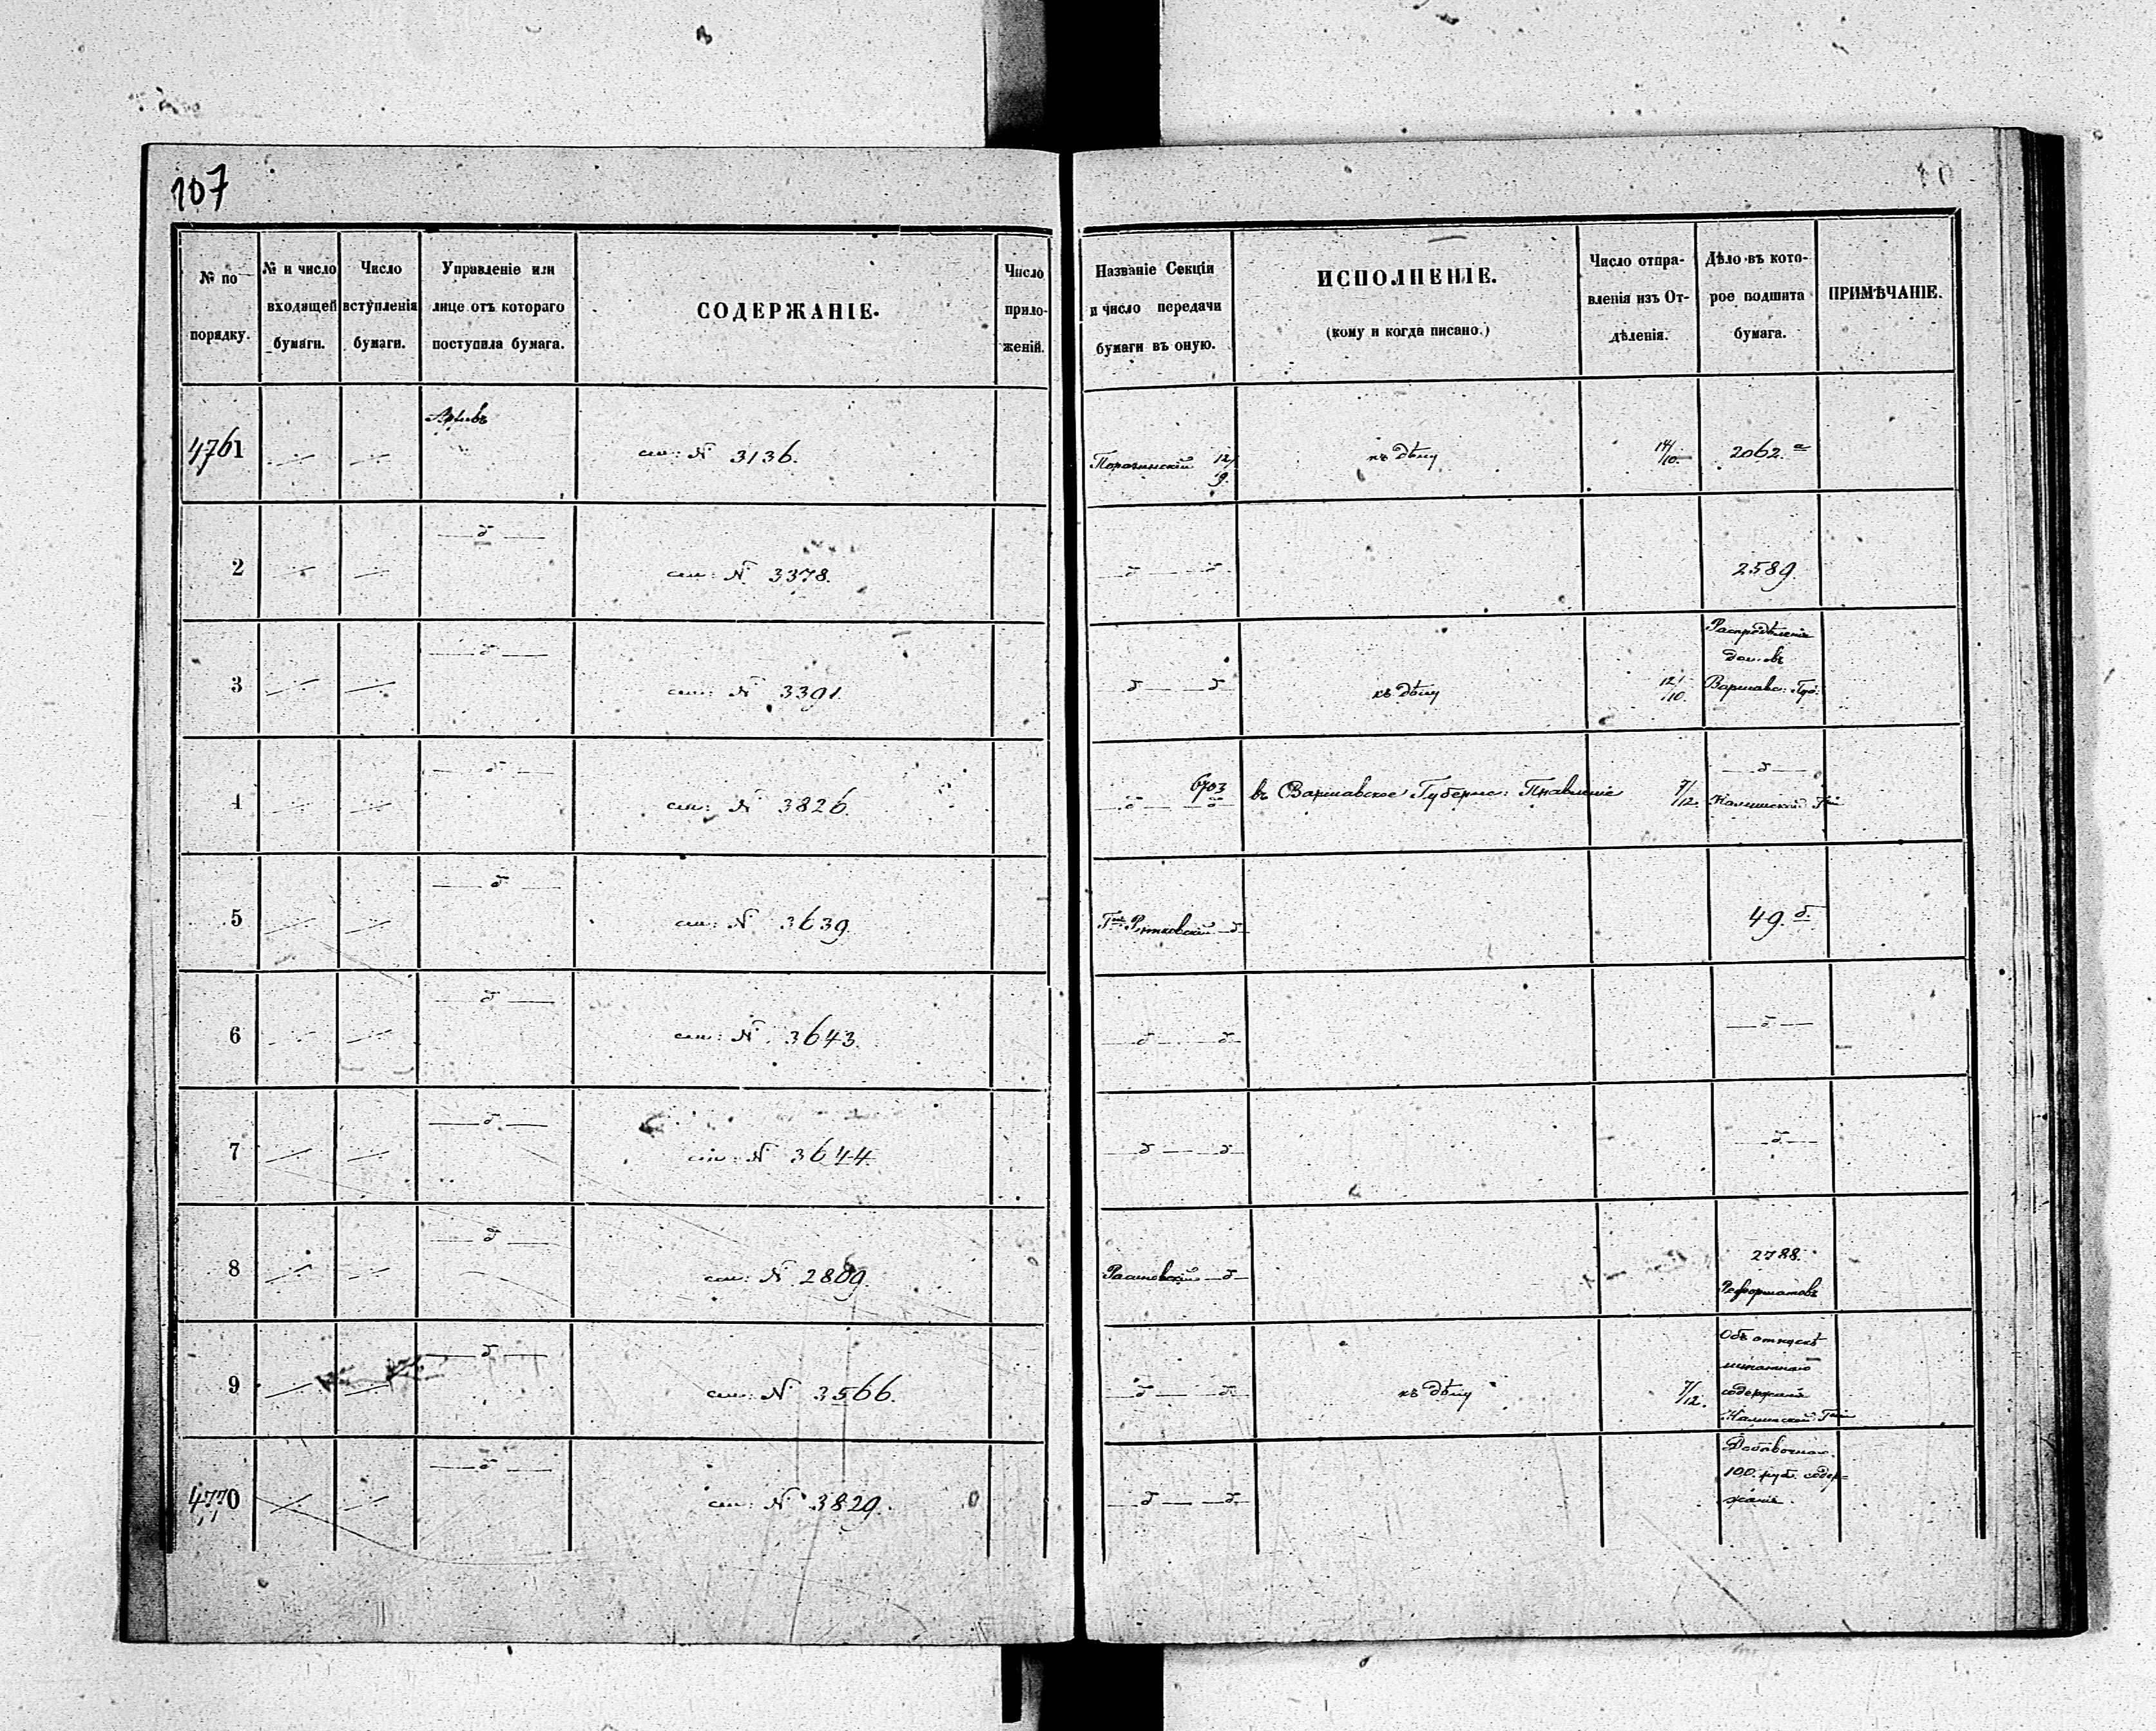 107
№ по порядку.
№ и число входящей бумаги.
Число вступленія бумаги.
Управленіе или лице отъ котораго поступила бумага.
СОДЕРЖАНІЕ.
Число приложеній.
Названіе Секціи и число передачи бумаги въ оную.
ИСПОЛНЕНІЕ.
(кому и когда писано.)
Число отправленія изъ Отдѣленія.
Дѣло въ которое подшита бумага.
ПРИМѢЧАНІЕ.
4761 Архивъ см: № 3136. 12/9. къ дѣлу 14/10. 2062. а
2 — д — см: № 3378. — д — д — 2589.
3 — д — см: № 3391. д — д къ дѣлу 12/10. Распредѣленіе домовъ Варшавс: Губ:
4 — д — см: № 3826. 6703 — д — д въ Варшавское Губернс: Правленіе 7/12. — д — Калишской Гіи
5 — д — см: № 3639. — д — 49. б.
6 — д — см: № 3643. — д — д — — д —
7 — д — см: № 3644. — д — д — — д —
8 — д — см: № 2809. — д — 2788. Реформатовъ
9 — д — см: № 3566. — д — д — къ дѣлу 7/12. Объ отпускѣ штатнаго содержанія Калишской Гіи
4770 — д — см: № 3829. — д — д — Добавочная 100. руб. содержанія.